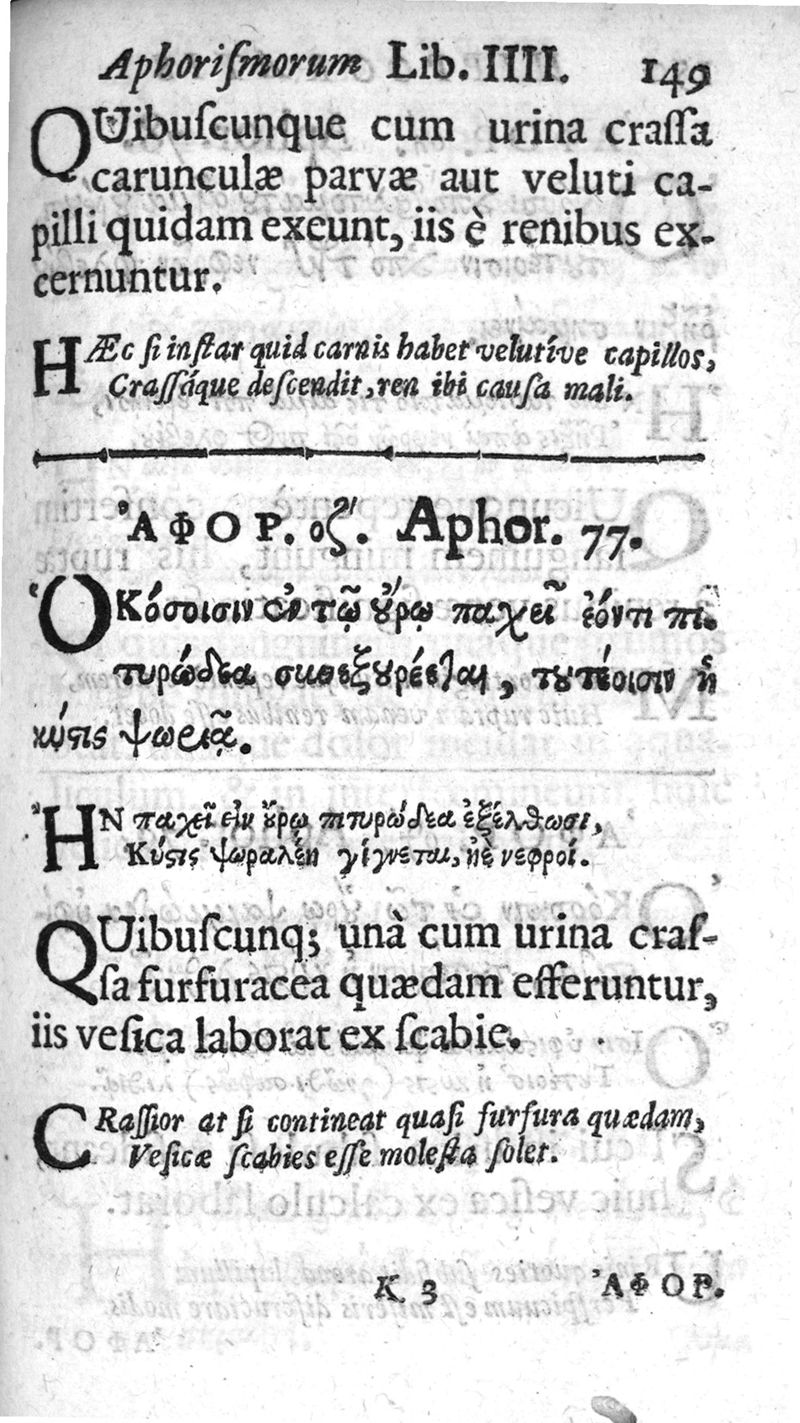 Aphoriſmorum Lib. IIII. 149
QUibuſcunque cum urina craſſa
carunculæ parvæ aut veluti ca-
pilli quidam exeunt, iis è renibus ex-
cernuntur.
HÆc ſi inſtar quid carnis habet velutíve capillos,
Craſſáque deſcendit, ren ibi cauſa mali.
ἈΦΟΡ. οζ'. Aphor. 77.
ὉΚόσοισιν ἐν τῷ ȣ̓́ρῳ παχεῖ ἐόντι πι-
τυρώδεα συνεξȣρέεται, τȣτέοισιν ἡ
κύστις ψωριᾷ.
ἪΝ παχεῖ εἰν ȣ̓́ρῳ πιτυρώδεα ἐξέλθωσι,
Κύστις ψωραλέη γίγνεται, ἠὲ νεφροί.
QUibuſcunq; unà cum urina craſ-
ſa furfuracea quædam efferuntur,
iis veſica laborat ex ſcabie.
CRaſſior at ſi contineat quaſi furfura quædam,
Veſicæ ſcabies eſſe moleſta ſolet.
K 3 ἈΦΟΡ.